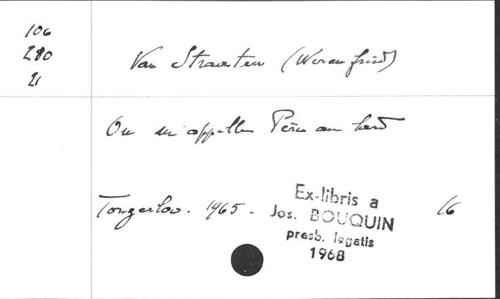 106
280
21
Van Straaten (Werenfried)
On m'appelle Père au lard
Tongerloo. 1965. 16
Ex-libris a
Jos. BOUQUIN
presb. legatis
1968